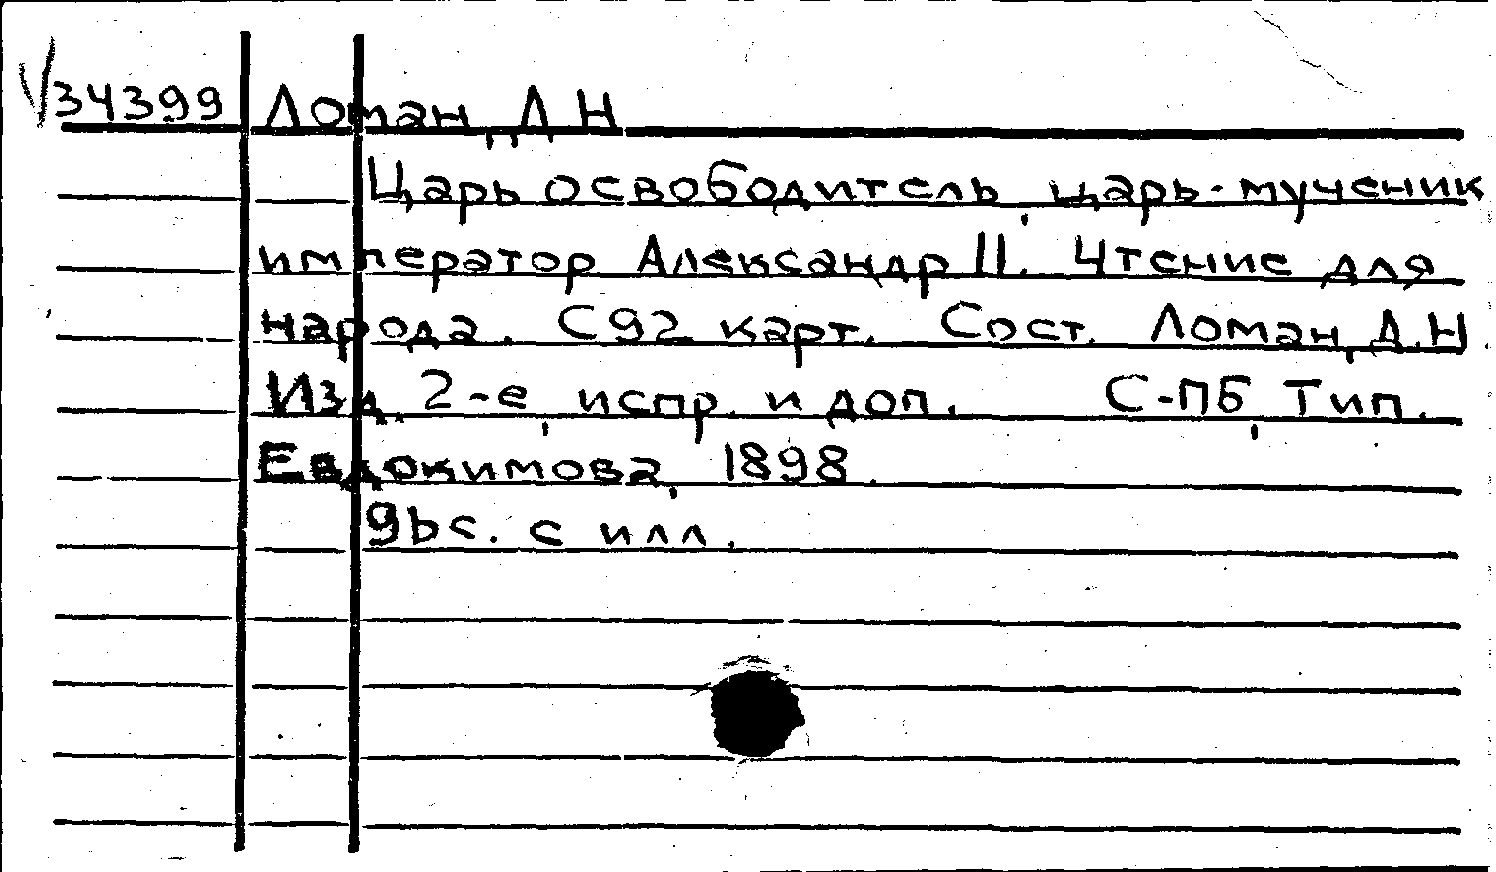 √34399 Ломан, Д Н
Царь освободитель, царь-мученик
император Александр II. Чтение для
народа. С 92 карт. Сост. Ломан, Д.Н.
Изд. 2-е, испр. и доп. С-ПБ, Тип.
Евдокимова, 1898.
96с. с илл.